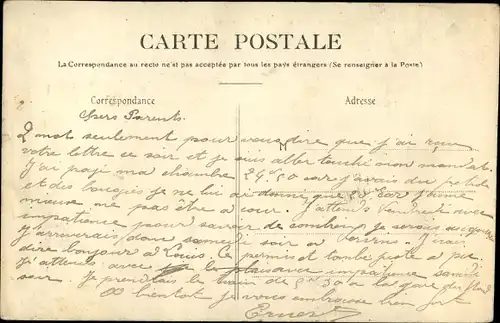 CARTE POSTALE
La Correspondance au recto n'est pas acceptée par tous les pays étrangers (Se renseigner à la Poste)
Correspondance
Adresse
Chers Parents.
2 mot seulement pour vous dire que j'ai reçu
votre lettre ce soir et je suis aller touché mon mandat.
J'ai payé ma chambre 24f50 car j'avais du pétrole
et des bougies je ne lui ai donné que car j'aime
mieux ne pas être à cour. J'attends vendredi avec
impatience pour savoir de combien je serais augmenté
J'arriverais donc samedi soir à J'irais
dire bonjour à Louis, le permis et tombé juste à pic.
J'attends avec la plaisance impatience samedi
soir. Je prendrais le train de 5h30 à la gare du Nord
A bientôt je vous embrasse bien fort
Ernest